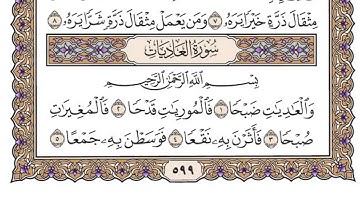 مِثْقَالَ ذَرَّةٍ خَيْرًا يَرَهُۥ ٧ وَمَن يَعْمَلْ مِثْقَالَ ذَرَّةٍ شَرًّا يَرَهُۥ ٨
سُورَةُ الْعَادِيَاتِ
بِسْمِ ٱللَّهِ ٱلرَّحْمَٰنِ ٱلرَّحِيمِ
وَٱلْعَٰدِيَٰتِ ضَبْحًا ١ فَٱلْمُورِيَٰتِ قَدْحًا ٢ فَٱلْمُغِيرَٰتِ
صُبْحًا ٣ فَأَثَرْنَ بِهِۦ نَقْعًا ٤ فَوَسَطْنَ بِهِۦ جَمْعًا ٥
٥٩٩